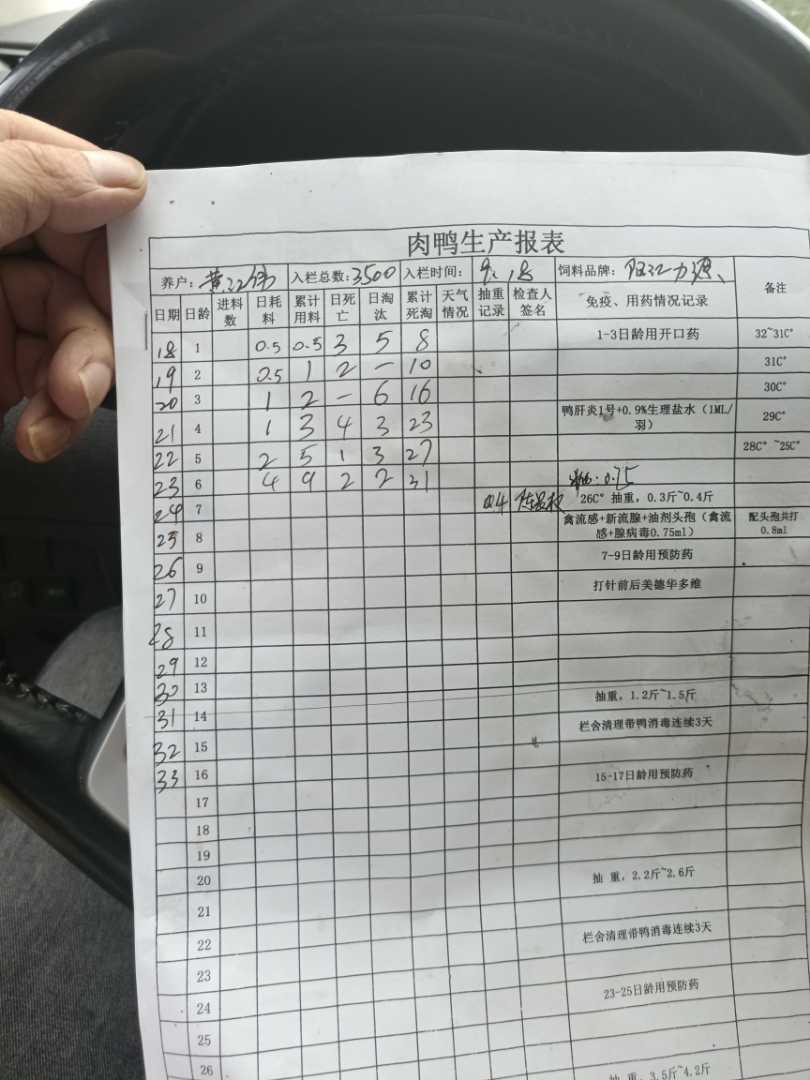 肉鸭生产报表
养户: 黄 入栏总数: 3500 入栏时间: 9.18 饲料品牌: 阳江力源 备注
日期 日龄 进料数 日耗料 累计用料 日死亡 日淘汰 累计死淘 天气情况 抽重记录 检查人签名 免疫、用药情况记录
18 1 0.5 0.5 3 5 8 1-3日龄用开口药 32~31C°
19 2 0.5 1 2 - 10 31C°
20 3 1 2 - 6 16 30C°
21 4 1 3 4 3 23 鸭肝炎1号+0.9%生理盐水（1ML/羽） 29C°
22 5 2 5 1 3 27 28C° ~25C°
23 6 4 9 2 2 31 0.75
24 7 0.4 26C° 抽重，0.3斤~0.4斤
25 8 禽流感+新流腺+油剂头孢（禽流感+腺病毒0.75ml） 配头孢共打0.8ml
26 9 7-9日龄用预防药
27 10 打针前后美德华多维
28 11
29 12
30 13 抽重，1.2斤~1.5斤
31 14 栏舍清理带鸭消毒连续3天
32 15
33 16 15-17日龄用预防药
17
18
19
20 抽 重，2.2斤~2.6斤
21
22 栏舍清理带鸭消毒连续3天
23
24 23-25日龄用预防药
25
26 抽 重，3.5斤~4.2斤